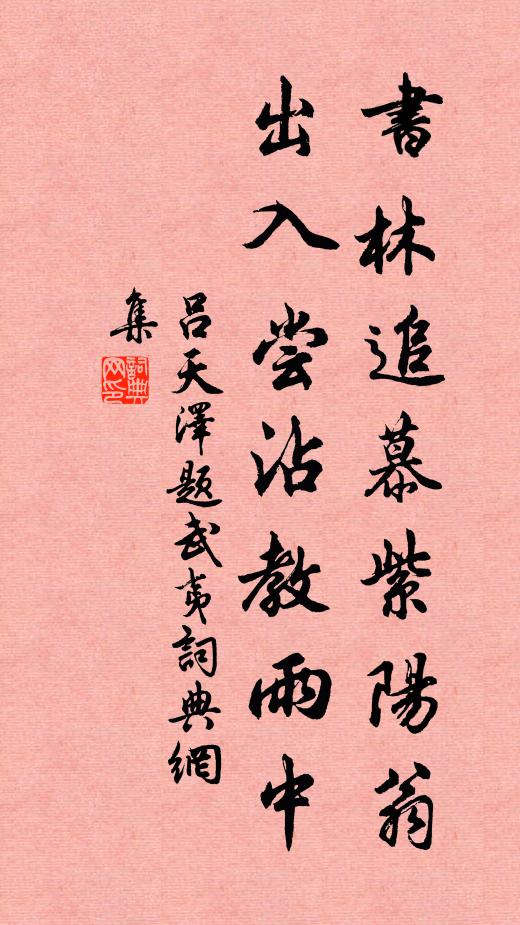 書林追慕紫陽翁
出入尝沾教雨中
吕天澤題武夷詞典網
集
詞典
网印